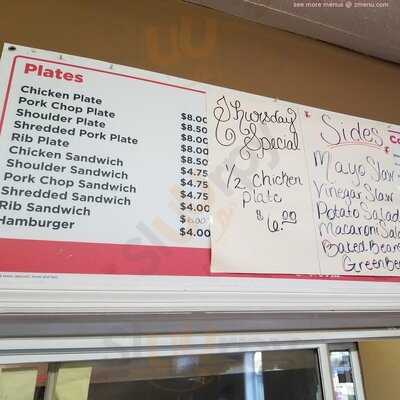 see more menus @ zmenu.com
Plates
Chicken Plate $8.00
Pork Chop Plate $8.50
Shoulder Plate $8.00
Shredded Pork Plate $8.00
Rib Plate $8.50
Chicken Sandwich $4.75
Shoulder Sandwich $4.75
Pork Chop Sandwich $4.75
Shredded Sandwich $4.00
Rib Sandwich
Hamburger $4.00
Thursday
Special
1/2 chicken
plate
$6.00
Sides
Mayo Slaw
Vinegar Slaw
Potato Salad
Macaroni Sal
Baked Beans
Green Be